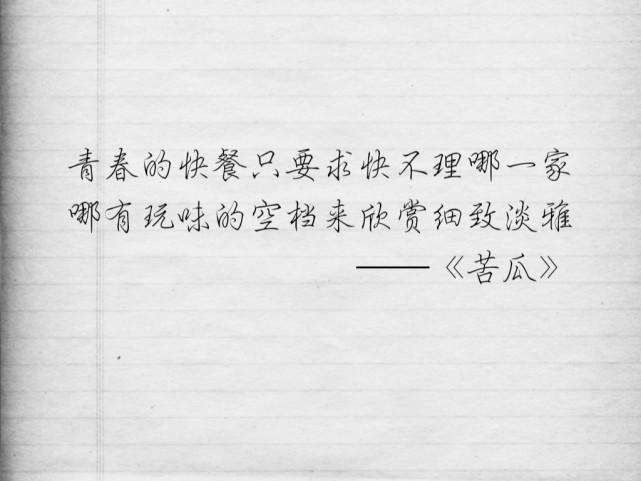 青春的快餐只要求快不理哪一家
哪有玩味的空档来欣赏细致淡雅
——《苦瓜》